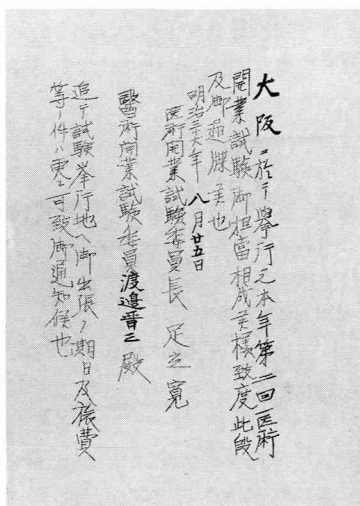 大阪ニ於テ舉行之本年第二回医術
開業試験御担當相成候様致度此段
及御通牒候也
明治三十六年八月廿五日
医術開業試験委員長 足立寛
醫術開業試験委員渡邉晋三殿
追テ試験挙行地ヘ御出張ノ期日及旅費
等ノ件ハ更ニ可致御通知候也